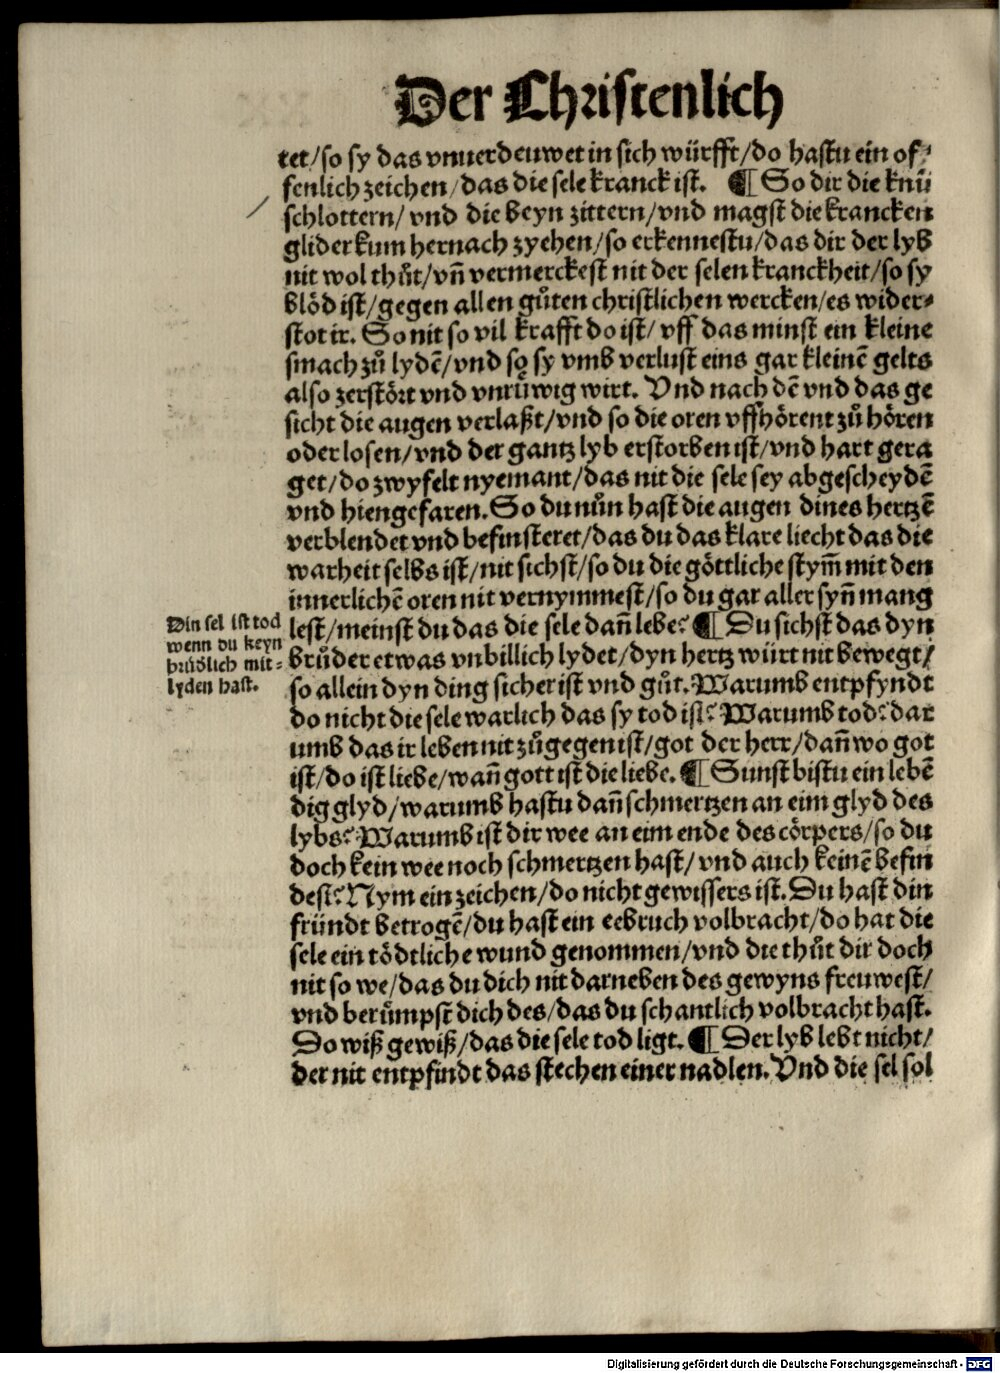 Der Christenlich
tet/so sy das vnuerdeuwet in sich würfft/do hastu ein of⸗
fenlich zeichen/das die sele kranck ist. ¶ So dir die knü
schlottern/vnd die beyn zittern/vnd magst die krancken
glider kum hernach zyehen/so erkennestu/das dir der lyb
nit wol thůt/vñ vermerckest nit der selen kranckheit/so sy
blöd ist/gegen allen gůten christlichen wercken/es wider⸗
stot ir. So nit so vil krafft do ist/vff das minst ein kleine
smach zů lydẽ/vnd so sy vmb verlust eins gar kleinẽ gelts
also zerstört vnd vnrüwig wirt. Vnd nach dẽ vnd das ge
sicht die augen verlaßt/vnd so die oren vffhörent zů hören
oder losen/vnd der gantz lyb erstorben ist/vnd hart gera
get/do zwyfelt nyemant/das nit die sele sey abgescheydẽ
vnd hiengefaren. So du nůn hast die augen dines hertzẽ
verblendet vnd befinsteret/das du das klare liecht das die
warheit selbs ist/nit sichst/so du die göttliche stym̃ mit den
innerlichẽ oren nit vernymmest/so du gar aller syñ mang
lest/meinst du das die sele dañ lebe? ¶ Du sichst das dyn
brůder etwas vnbillich lydet/dyn hertz würt nit bewegt/
so allein dyn ding sicher ist vnd gůt. Warumb entpfyndt
do nicht die sele warlich das sy tod ist? Warumb tod? dar
umb das ir leben nit zůgegen ist/got der herr/dañ wo got
ist/do ist liebe/wañ gott ist die liebe. ¶ Sunst bistu ein lebẽ
dig glyd/warumb hastu dañ schmertzen an eim glyd des
lybs? Warumb ist dir wee an eim ende des cörpers/so du
doch kein wee noch schmertzen hast/vnd auch keinẽ befin
dest? Nym ein zeichen/do nicht gewissers ist. Du hast din
fründt betrogẽ/du hast ein eebruch volbracht/do hat die
sele ein tödtliche wund genommen/vnd die thůt dir doch
nit so we/das du dich nit darneben des gewyns freuwest/
vnd berůmpst dich des/das du schantlich volbracht hast.
Do wiß gewiß/das die sele tod ligt. ¶ Der lyb lebt nicht/
der nit entpfindt das stechen einer nadlen. Vnd die sel sol
Din sel ist tod
wenn du keyn
brüdlich mit⸗
lyden hast.
Digitalisierung gefördert durch die Deutsche Forschungsgemeinschaft - DFG